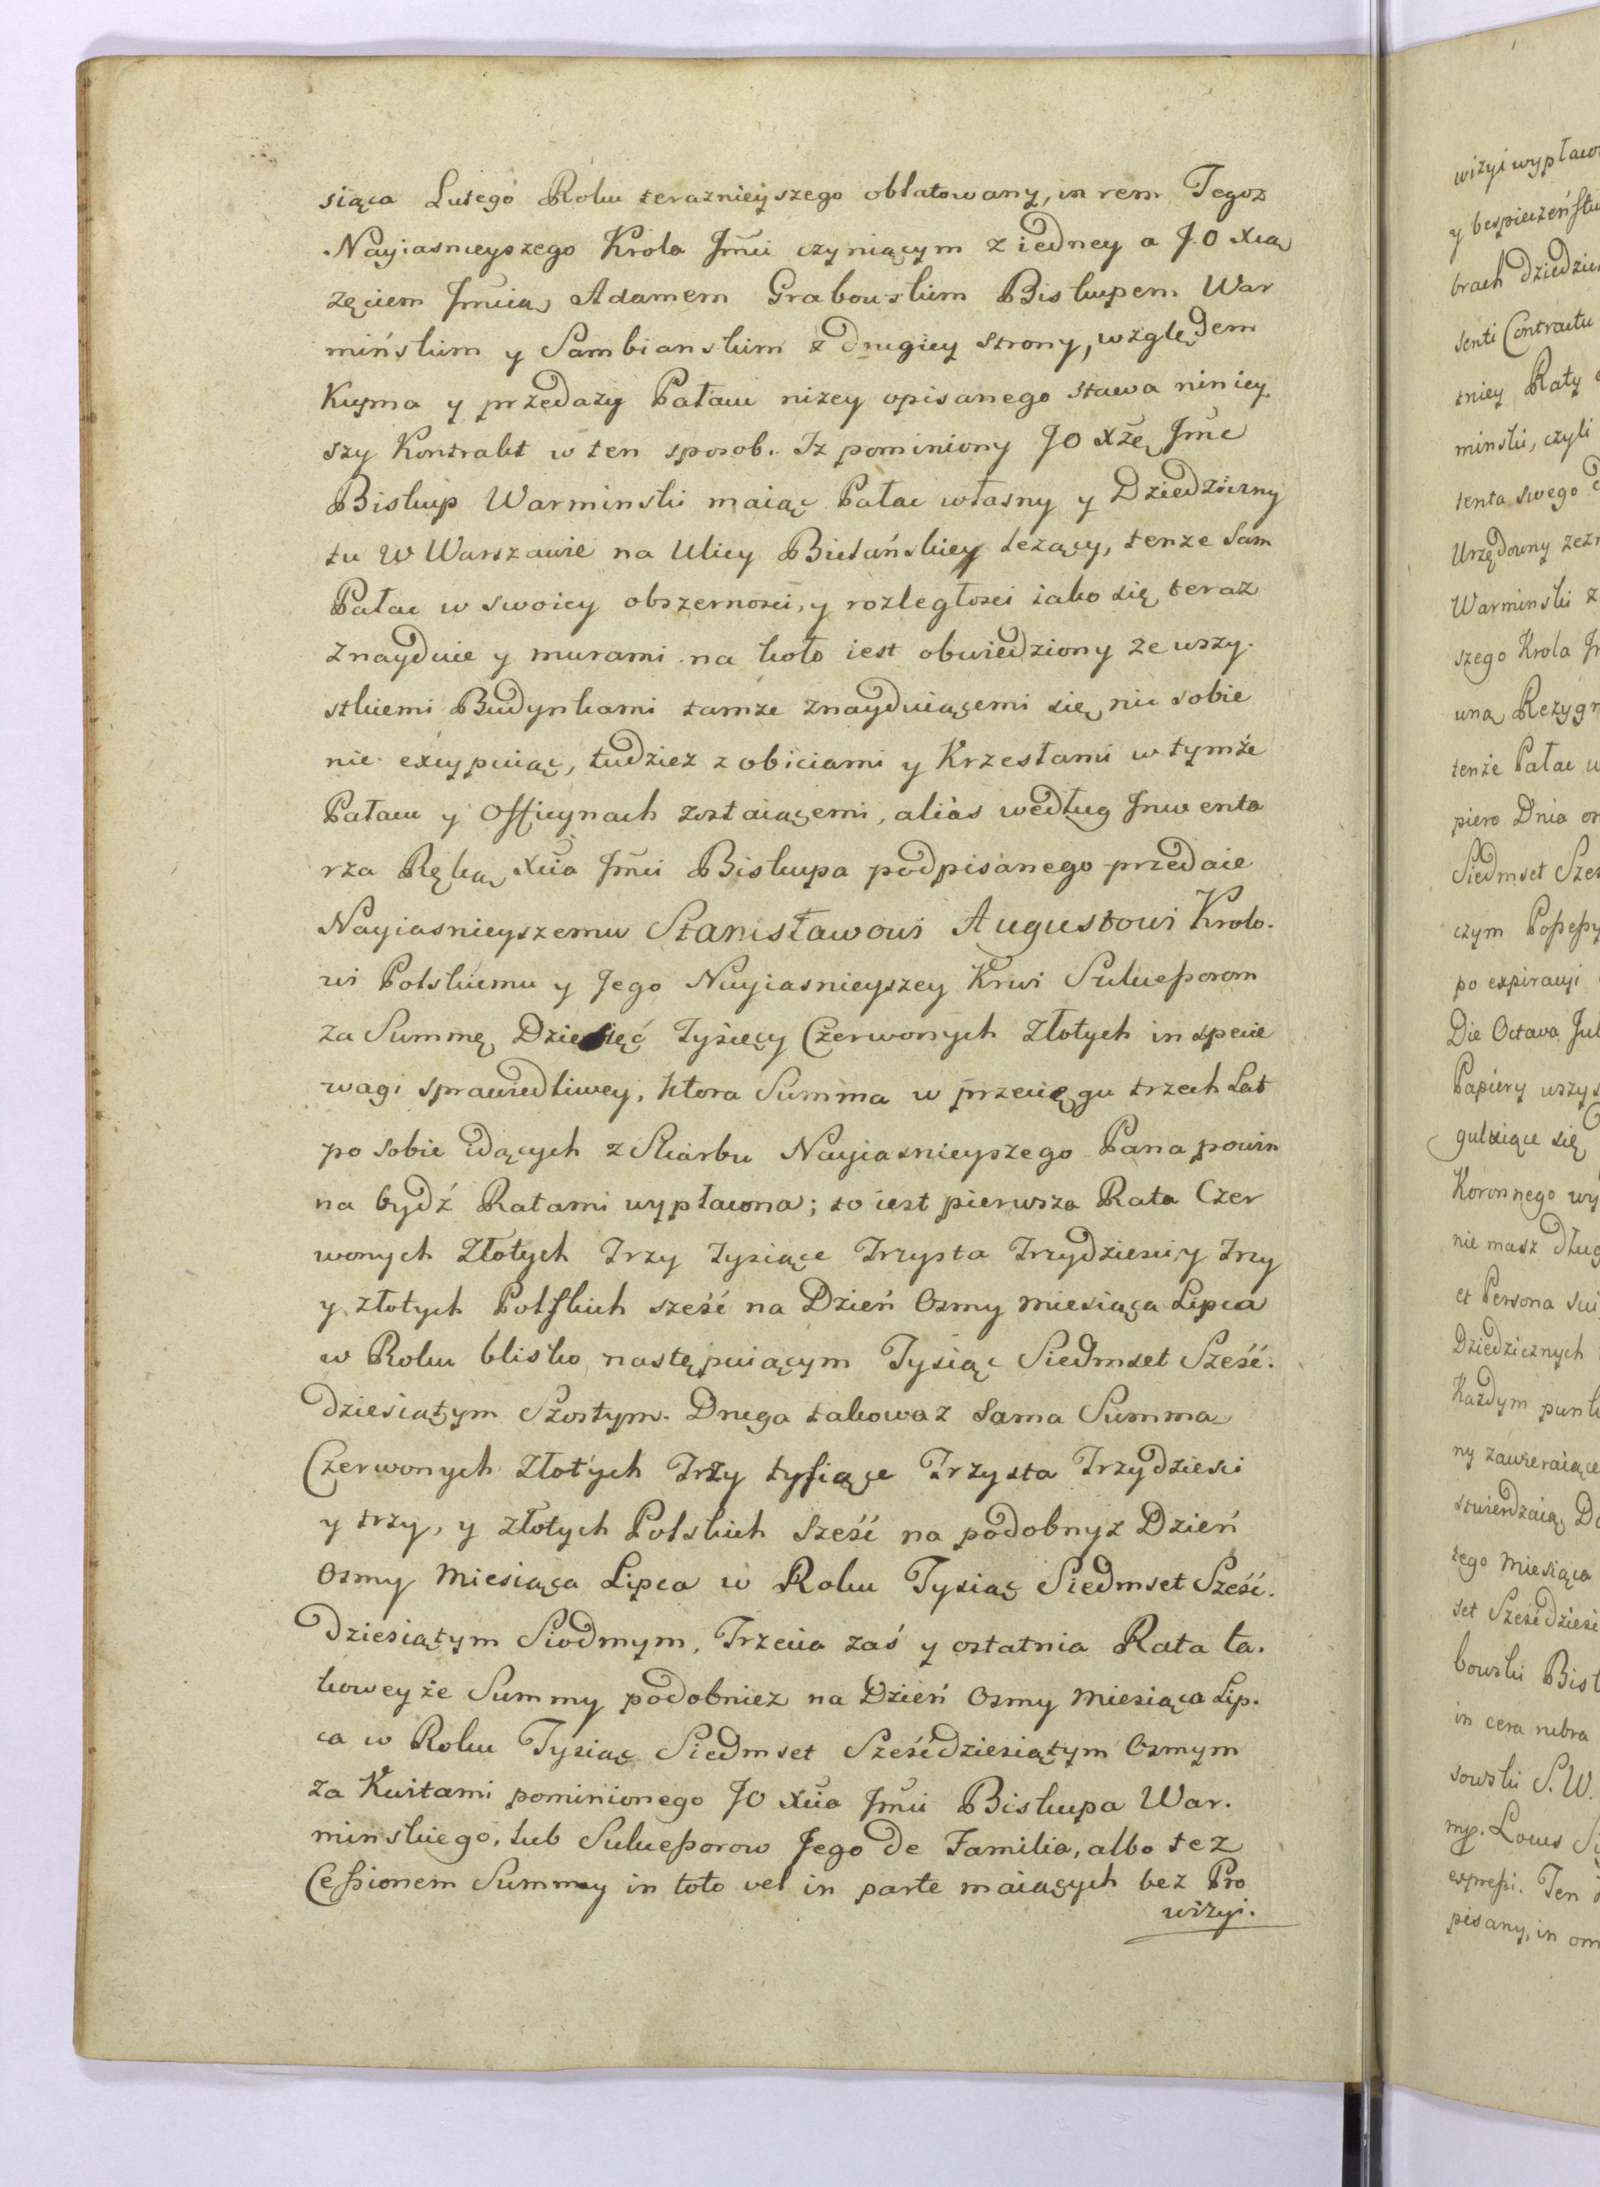 siąca Lutego Roku teraznieyszego oblatowany, in rem Tegoz
Nayiasnieyszego Krola Jm̃ci czyniącym z iedney a J.O Xią
zęciem Jm̃cią Adamem Grabowskim Biskupem War
mińskim y Sambianskim z drugiey strony, względem
Kupna y przedazy Pałacu nizey opisanego stawa niniey
szy Kontrakt w ten sposob. Iz pominiony JO Xże Jm̃c
Biskup Warminski maiąc Pałac własny y Dziedziczny
tu w Warszawie na Ulicy Bielańskiey lezący, tenze Sam
Pałac w swoiey obszernosci, y rozległosci iako się teraz
znayduie y murami na koło iest obwiedziony ze wszy-
stkiemi Budynkami tamze znayduiącemi się nic sobie
nie excypuiąc, tudziez z obiciami y Krzesłami w tymże
Pałacu y Officynach zostaiącemi, aliàs według Inwenta
rza Ręką Xcia Jm̃ci Biskupa podpisanego przedaie
Nayiasnieyszemu Stanisławowi Augustowi Krolo-
wi Polskiemu y Jego Nayiasnieyszey Krwi Sukceßorom
za Summę Dziesięć Tysięcy Czerwonych Złotych in specie
wagi sprawiedliwey, ktora Summa w przeciągu trzech Lat
po sobie idących z Skarbu Nayiasnieyszego Pana powin
na bydź Ratami wypłacona; to iest pierwsza Rata Czer
wonych Złotych Trzy Tysiące Trzysta Trzydziesci y Trzy
y złotych Polskich sześć na Dzień Osmy Miesiąca Lipca
w Roku blisko następuiącym Tysiąc Siedmset Sześć-
dziesiątym Szostym. Druga takowaz Sama Summa
Czerwonych Złotych Trzy tysiące Trzysta Trzydziesci
y trzy, y złotych Polskich Sześć na podobnyz Dzień
Osmy Miesiąca Lipca w Roku Tysiąc Siedmset Sześć-
dziesiątym Siodmym, Trzecia zaś y ostatnia Rata ta-
koweyże Summy podobniez na Dzień Osmy Miesiąca Lip-
ca w Roku Tysiąc Siedmset Sześćdziesiątym Osmym
za Kwitami pominionego JO Xcia Jm̃ci Biskupa War-
minskiego, lub Sukceßorow Jego de Familia, albo tez
Ceßionem Summy in toto vel in parte maiących bez Pro
wizyi.
wizyi wypłaco
y bespieczeństw
brach dziedzic
senti Contractu
tniey Raty
minski, czyli
tenta swego
Urzędowny zezn
Warminski z
szego Krola
una Rezygn
tenże Pałac w
piero Dnia
Siedmset Szes
czym Poßeßy
po expiracyi
Die Octava Jul
Papiery wszys
guluiące się
Koronnego wy
nie masz dług
et Persona
Dziedzicznych
Każdym punk
ny zawieraiące
stwierdzaią
tego Miesiąca
set Sześćdziesi
bowski Bisk
in cera rubra
sowski S. W.
mp. Locus
expreßi. Ten
pisany, in om